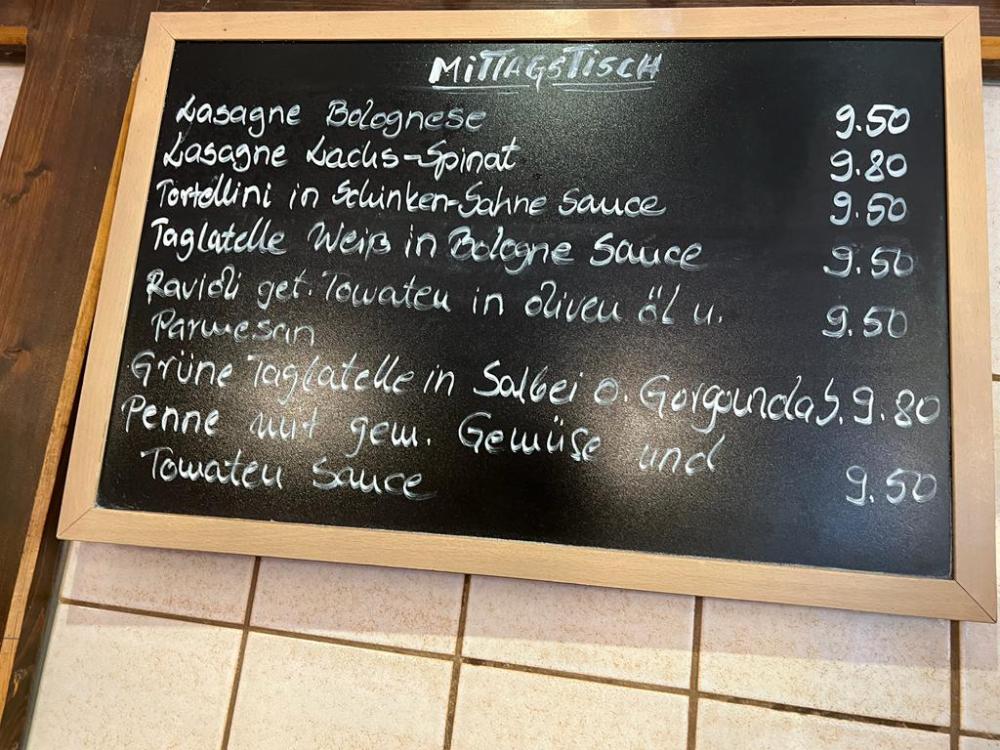 MiTTAGSTiSCH
Lasagne Bolognese 9.50
Lasagne Lachs-Spinat 9.80
Tortellini in Schinken-Sahne Sauce 9.50
Taglatelle Weiß in Bologne Sauce 9.50
Ravioli get. Tomaten in oliven öl u. 9.50
Parmesan
Grüne Taglatelle in Salbei o. Gorgounda S. 9.80
Penne mit gem. Gemüse und
Tomaten Sauce 9.50